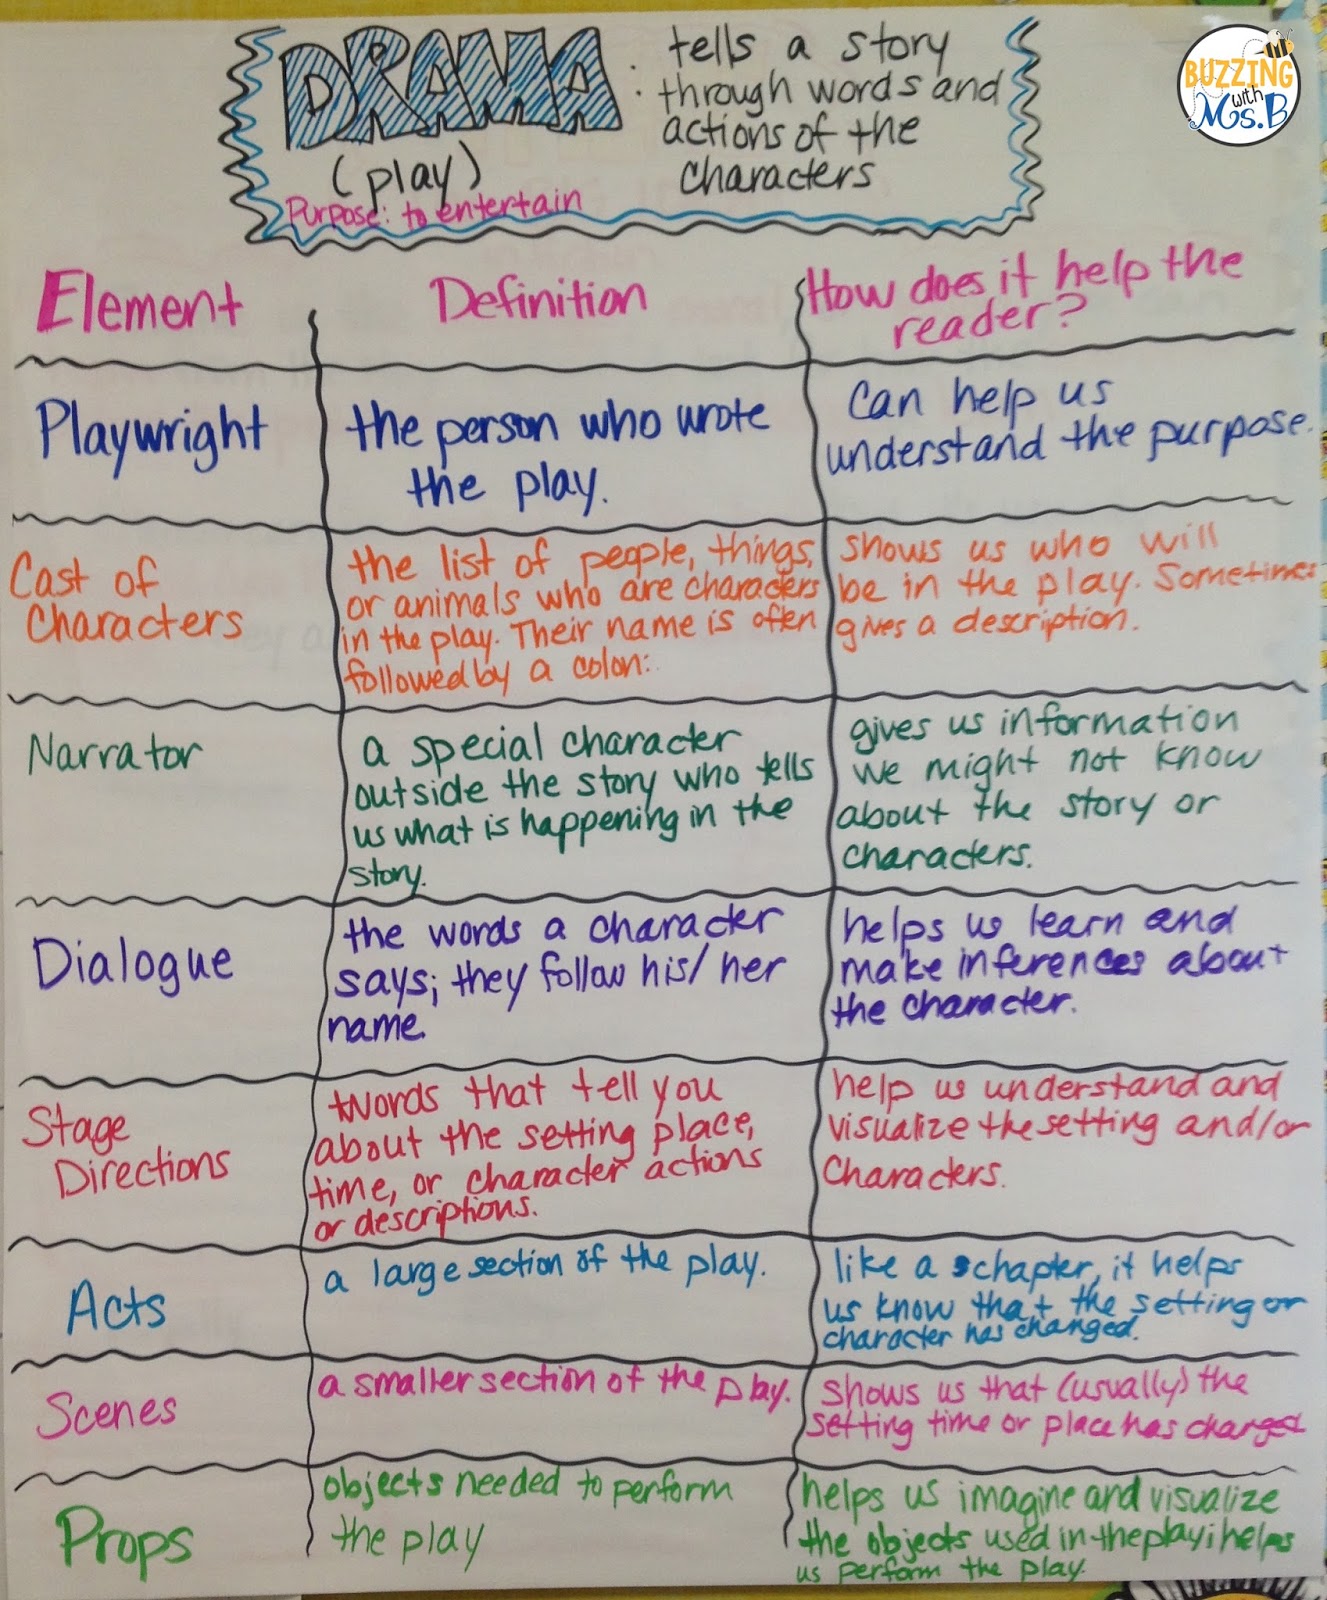 DRAMA:
(play)
Purpose: to entertain
tells a story
through words and
actions of the
characters
BUZZING
with
Ms.B
Element
Definition
How does it help the
reader?
Playwright
the person who wrote
the play.
can help us
understand the purpose.
Cast of
Characters
the list of people, things,
or animals who are characters
in the play. Their name is often
followed by a colon:
shows us who will
be in the play. Sometimes
gives a description.
Narrator
a special character
outside the story who tells
us what is happening in the
story.
gives us information
we might not know
about the story or
characters.
Dialogue
the words a character
says; they follow his/her
name.
helps us learn and
make inferences about
the character.
Stage
Directions
words that tell you
about the setting place,
time, or character actions
or descriptions.
help us understand and
visualize the setting and/or
Characters.
Acts
a large section of the play.
like a chapter, it helps
us know that the setting or
character has changed.
Scenes
a smaller section of the play.
shows us that (usually) the
setting time or place has changed
Props
objects needed to perform
the play
helps us imagine and visualize
the objects used in the play; helps
us perform the play.